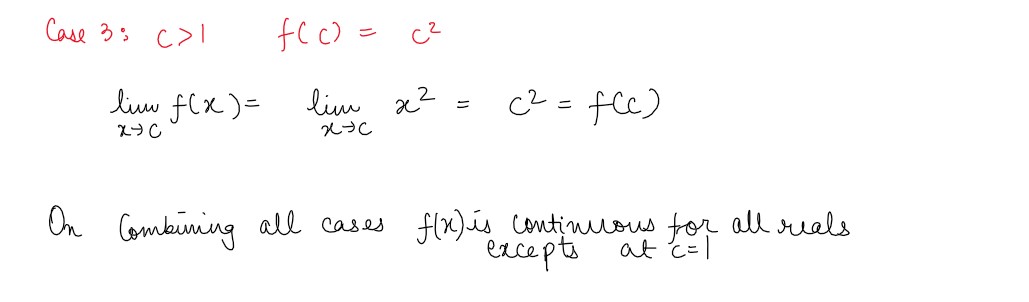 Case 3: c>1 f(c) = c²
lim f(x) = lim x² = c² = f(c)
x→c x→c
On Combining all cases f(x) is continuous for all reals
excepts at c=1